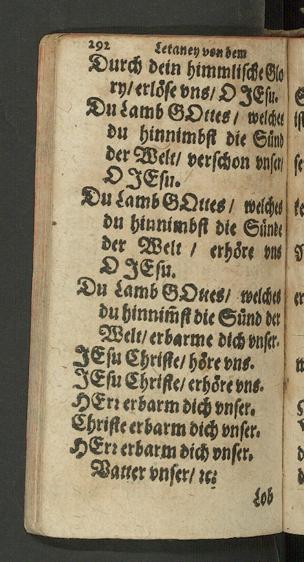 292 Letaney von dem
Durch dein himmlische Glo
ry/ erlöse vns/ O JEsu.
Du Lamb GOttes/ welches
du hinnimbst die Sünd
der Welt/ verschon vnser/
O JEsu.
Du Lamb GOttes/ welches
du hinnimbst die Sünde
der Welt / erhöre vns
O JEsu.
Du Lamb GOttes/ welches
du hinnim̃st die Sünd der
Welt/ erbarme dich vnser.
JEsu Christe/ höre vns.
JEsu Christe/ erhöre vns.
HErr erbarm dich vnser.
Christe erbarm dich vnser.
HErr erbarm dich vnser.
Vatter vnser/ ꝛc:
Lob